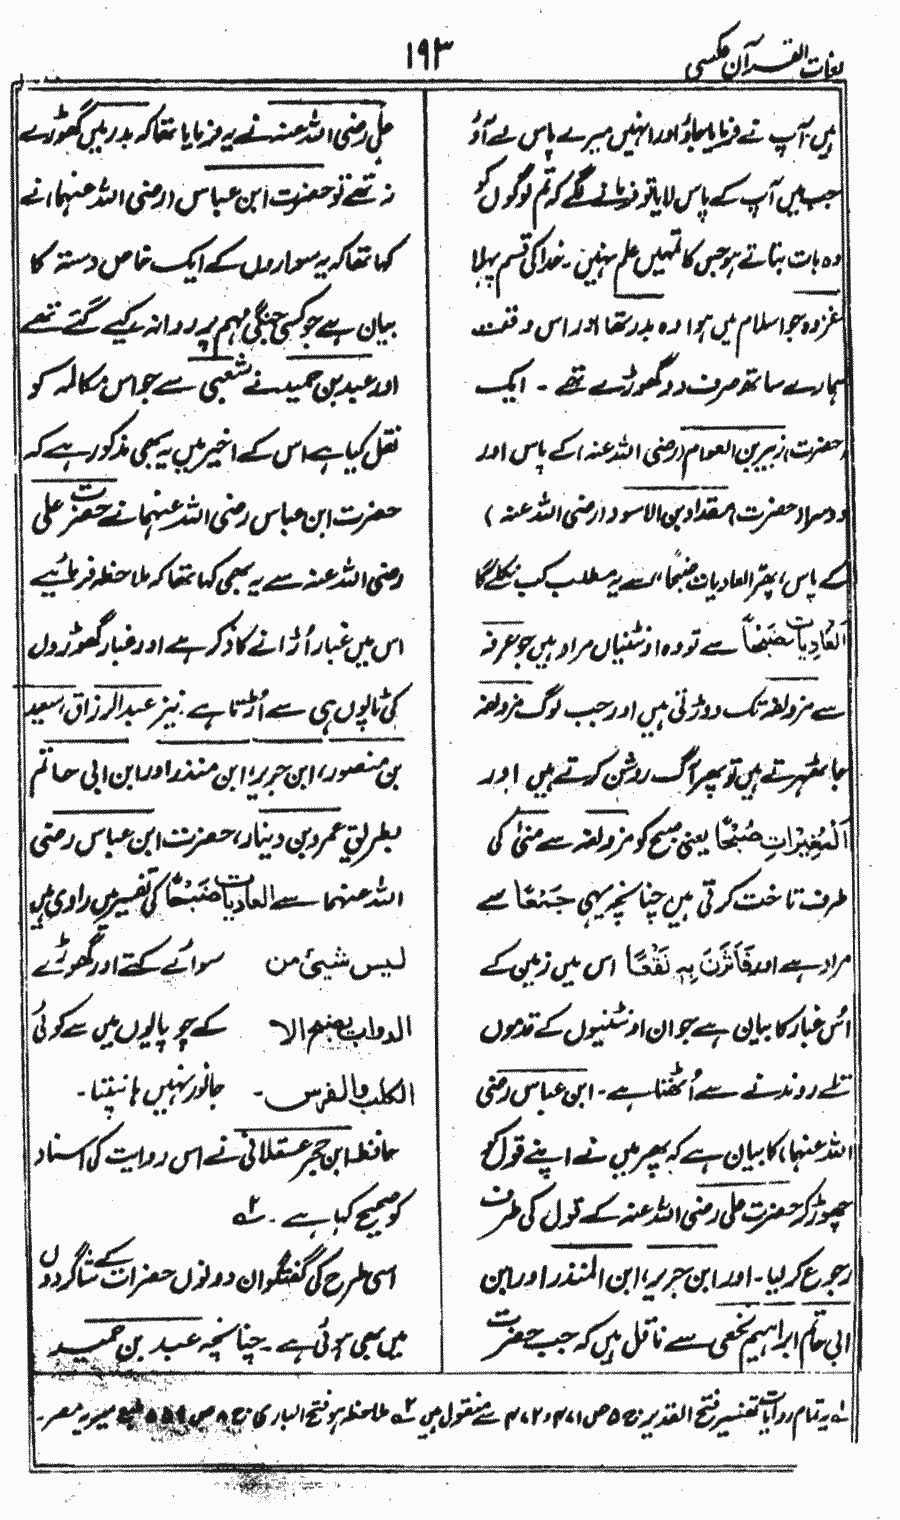 لغات القرآن عکسی
۱۹۳
ہیں، آپ نے فرمایا جاؤ اور انہیں میرے پاس لے آؤ
جب میں آپ کے پاس لایا تو فرمانے لگے کہ تم لوگوں کو
وہ بات بتاتے ہو جس کا تمہیں علم نہیں۔ خدا کی قسم پہلا
غزوہ جو اسلام میں ہوا وہ بدر تھا اور اس وقت
ہمارے ساتھ صرف دو گھوڑے تھے ۔ ایک
(حضرت) زبیر بن العوام (رضی اللہ عنہ) کے پاس اور
دوسرا (حضرت) مقداد بن الاسود (رضی اللہ عنہ)
کے پاس، پھر العادیات ضبحاً، سے یہ مطلب کب نکلے گا
العادیات ضبحاً سے تو وہ اونٹنیاں مراد ہیں جو عرفہ
سے مزدلفہ تک دوڑتی ہیں اور جب لوگ مزدلفہ
جا ٹھہرتے ہیں تو پھر آگ روشن کرتے ہیں اور
اَلْمُغِیْرَاتِ صُبْحًا یعنی صبح کو مزدلفہ سے منیٰ کی
طرف تاخت کرتی ہیں چنانچہ یہی جَمْعًا سے
مراد ہے اور فَاَثَرْنَ بِہٖ نَقْعًا اس میں زمین کے
اُس غبار کا بیان ہے جو ان اونٹنیوں کے قدموں
تلے روندنے سے اُٹھتا ہے۔ ابن عباس رضی
اللہ عنہما، کا بیان ہے کہ پھر میں نے اپنے قول کو
چھوڑ کر حضرت علی رضی اللہ عنہ کے قول کی طرف
رجوع کر لیا۔ اور ابن جریر، ابن المنذر اور ابن
ابی حاتم ابراہیم نخعی سے ناقل ہیں کہ جب حضرت
علی رضی اللہ عنہ نے یہ فرمایا تھا کہ بدر میں گھوڑے
نہ تھے تو حضرت ابن عباس (رضی اللہ عنہما نے
کہا تھا کہ یہ سواروں کے ایک خاص دستہ کا
بیان ہے جو کسی جنگی مہم پر روانہ کیے گئے تھے
اور عبد بن حمید نے شعبی سے جو اس مکالمہ کو
نقل کیا ہے اس کے اخیر میں یہ بھی مذکور ہے کہ
حضرت ابن عباس رضی اللہ عنہما نے حضرت علی
رضی اللہ عنہ سے یہ بھی کہا تھا کہ ملاحظہ فرمائیے
اس میں غبار اُڑانے کا ذکر ہے اور غبار گھوڑوں
کی ٹاپوں ہی سے اُڑتا ہے۔ نیز عبد الرزاق، سعید
بن منصور، ابن جریر، ابن منذر اور ابن ابی حاتم
بطریق عمرو بن دینار، حضرت ابن عباس رضی
اللہ عنہما سے العادیات ضَبْحًا کی تفسیر میں راوی ہیں
لیس شیئ من سوائے کتے اور گھوڑے
الدواب یضبح الا کے چوپایوں میں سے کوئی
الکلب والفرس۔ جانور نہیں ہانپتا۔
حافظ ابن حجر عسقلانی نے اس روایت کی اسناد
کو صحیح کہا ہے۔ ۲؎
اسی طرح کی گفتگو ان دونوں حضرات کے شاگردوں
میں بھی ہوئی ہے ۔ چنانچہ عبد بن حمید
۱؎ یہ تمام روایات تفسیر فتح القدیر ج ۵ ص ۴۷۱ و ۴۷۲ سے منقول ہیں ۲؎ ملاحظہ ہو فتح الباری ج ۸ ص ۵۵۹ طبع میریہ مصر۔